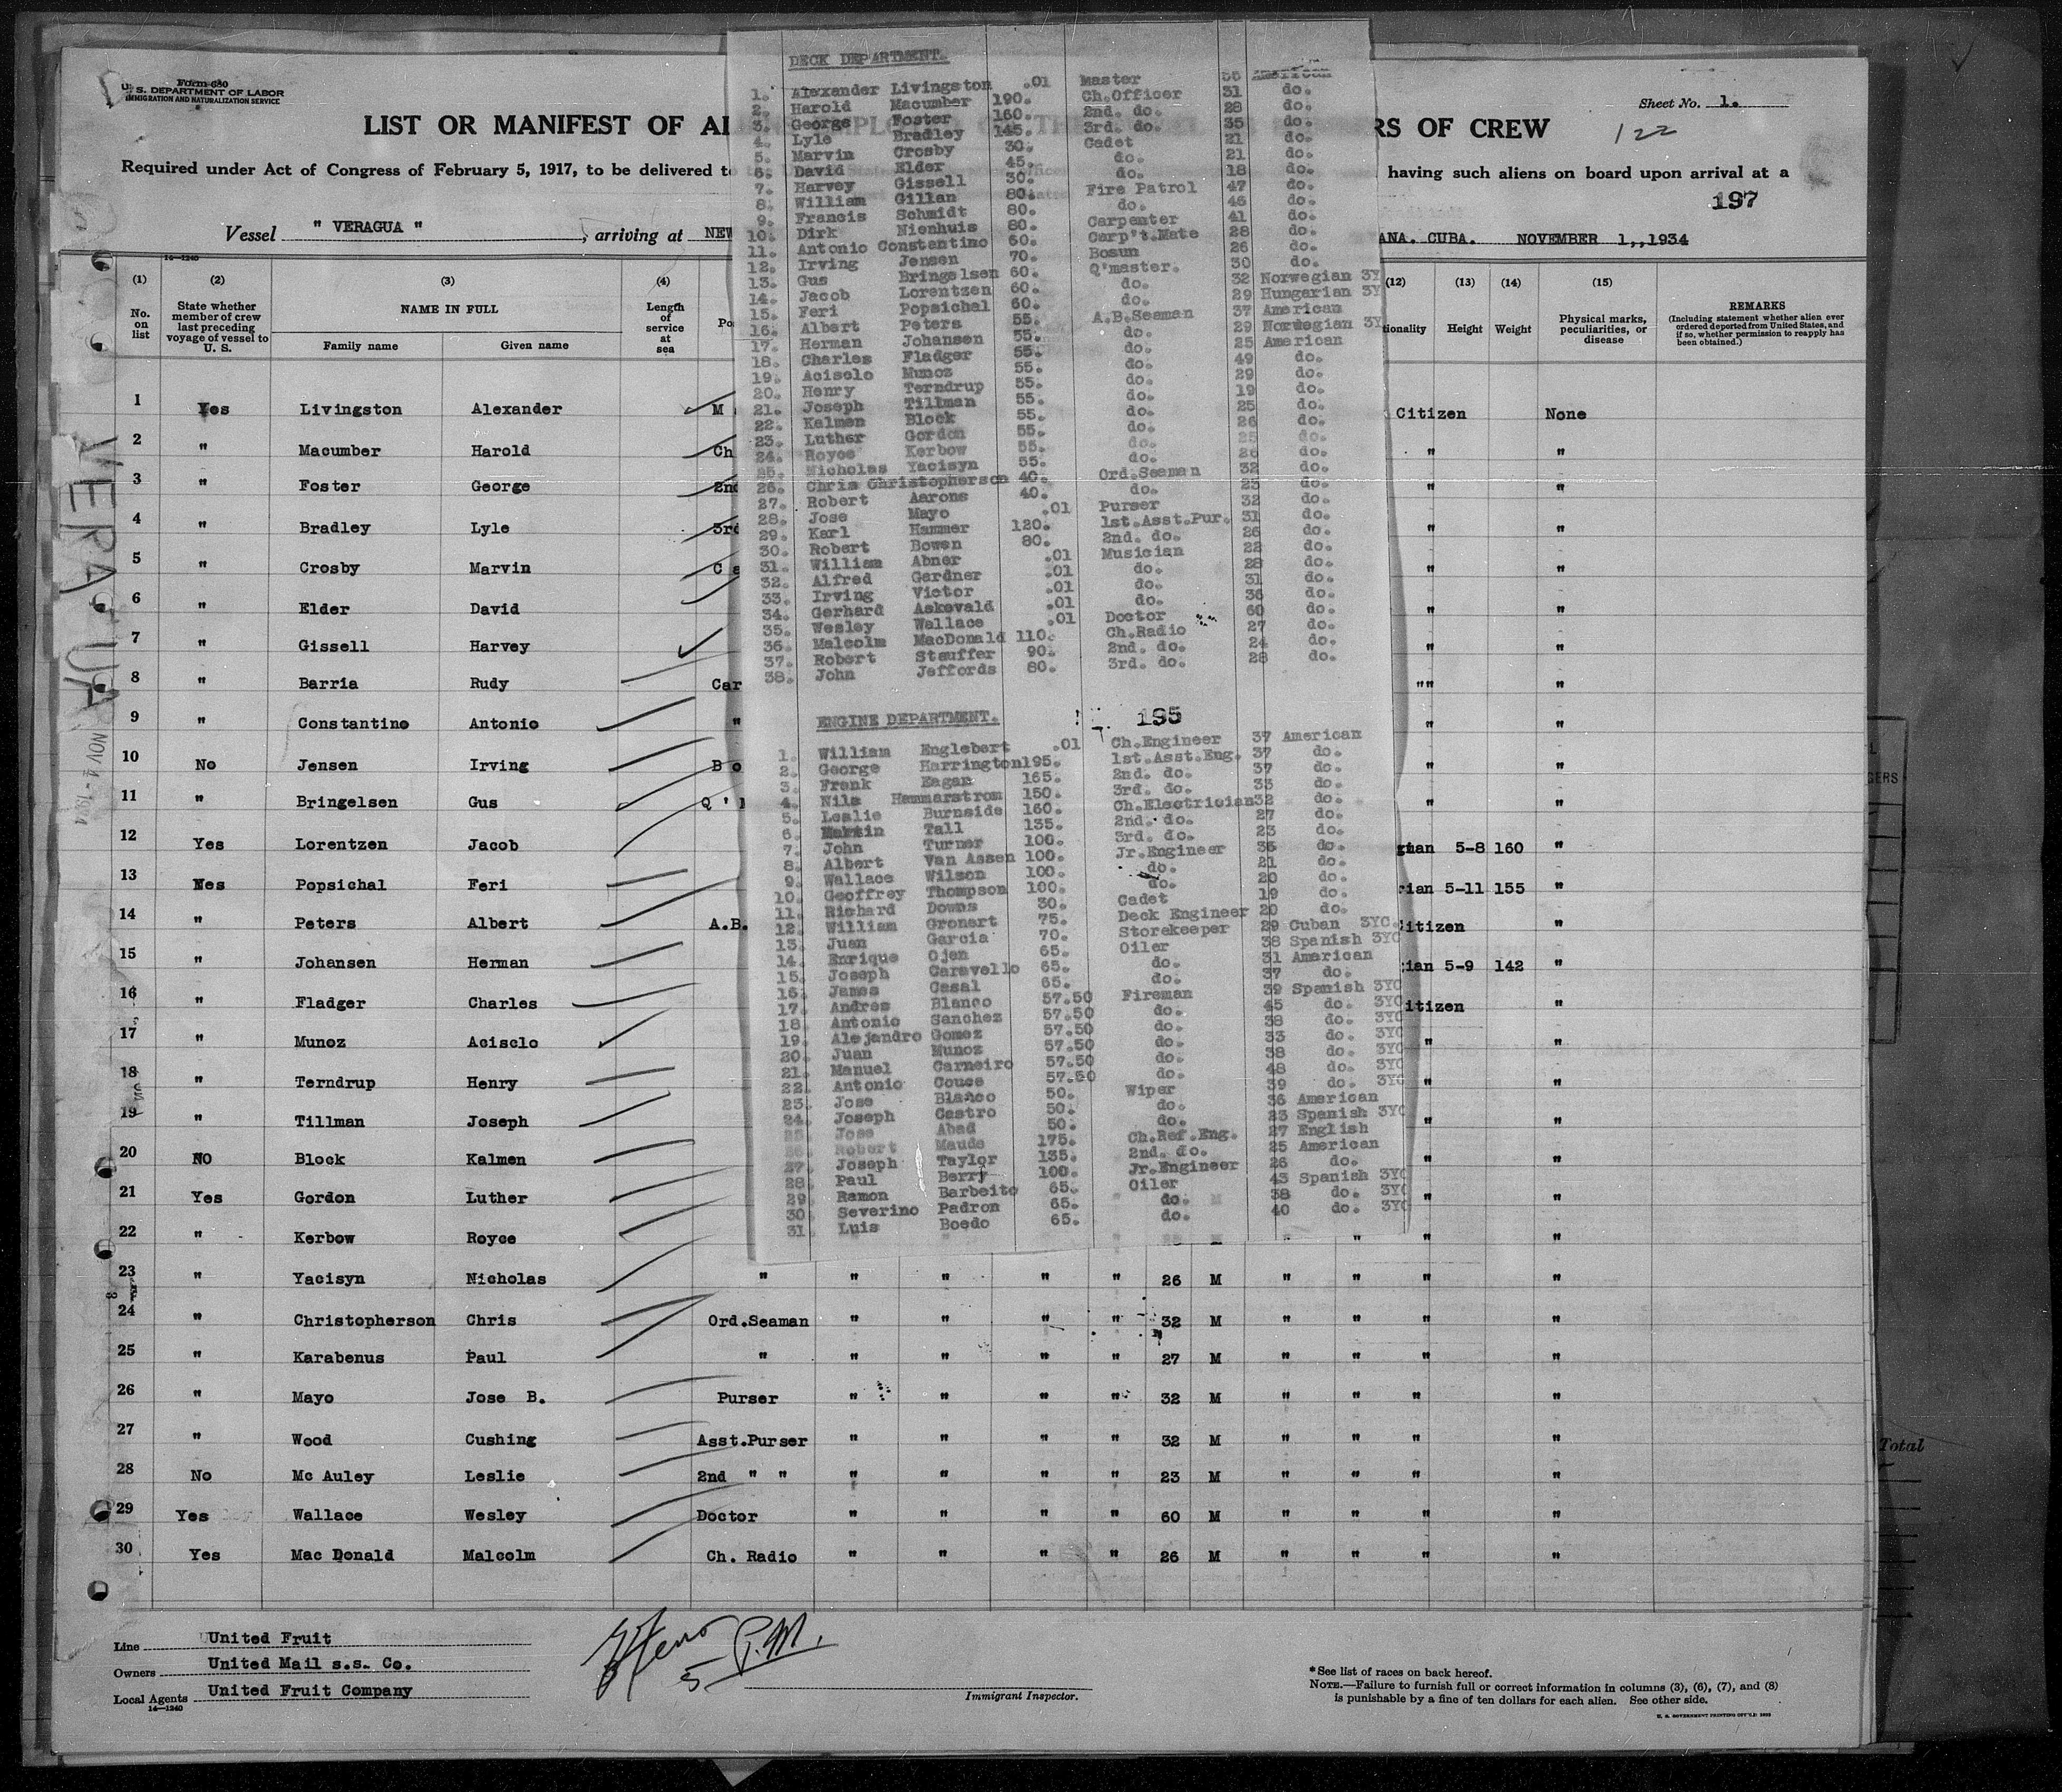 Form 680
U. S. DEPARTMENT OF LABOR
IMMIGRATION AND NATURALIZATION SERVICE
Sheet No. 1.
122
LIST OR MANIFEST OF AL RS OF CREW
Required under Act of Congress of February 5, 1917, to be delivered to having such aliens on board upon arrival at a
197
Vessel " VERAGUA " , arriving at NEW ANA. CUBA. NOVEMBER 1,,1934
14—1240
DECK DEPARTMENT.
1. Alexander Livingston .01 Master 35 American
2. Harold Macumber 190. Ch.Officer 31 do.
3. George Foster 160. 2nd. do. 28 do.
4. Lyle Bradley 145. 3rd. do. 35 do.
5. Marvin Crosby 30. Cadet 21 do.
6. David Elder 45. do. 21 do.
7. Harvey Gissell 30. do. 18 do.
8. William Gillan 80. Fire Patrol 47 do.
9. Francis Schmidt 80. do. 46 do.
10. Dirk Nienhuis 80. Carpenter 41 do.
11. Antonio Constantino 60. Carp't.Mate 28 do.
12. Irving Jensen 70. Bosun 26 do.
13. Gus Bringelsen 60. Q'master. 30 do.
14. Jacob Lorentzen 60. do. 32 Norwegian 3Y
15. Feri Popsichal 60. do. 29 Hungarian 3Y
16. Albert Peters 55. A.B.Seaman 37 American
17. Herman Johansen 55. do. 29 Norwegian 3Y
18. Charles Fladger 55. do. 25 American
19. Acisclo Munoz 55. do. 49 do.
20. Henry Terndrup 55. do. 29 do.
21. Joseph Tillman 55. do. 19 do.
22. Kalmen Block 55. do. 25 do.
23. Luther Gordon 55. do. 26 do.
24. Royce Kerbow 55. do. 25 do.
25. Nicholas Yacisyn 55. do. 26 do.
26. Chris Christopherson 40. Ord.Seaman 32 do.
27. Robert Aarons 40. do. 23 do.
28. Jose Mayo .01 Purser 32 do.
29. Karl Hammer 120. 1st.Asst.Pur. 31 do.
30. Robert Bowen 80. 2nd. do. 26 do.
31. William Abner .01 Musician 22 do.
32. Alfred Gardner .01 do. 28 do.
33. Irving Victor .01 do. 31 do.
34. Gerhard Askevald .01 do. 36 do.
35. Wesley Wallace .01 Doctor 60 do.
36. Malcolm MacDonald 110. Ch.Radio 27 do.
37. Robert Stauffer 90. 2nd. do. 24 do.
38. John Jeffords 80. 3rd. do. 28 do.
ENGINE DEPARTMENT. 195
1. William Englebert .01 Ch.Engineer 37 American
2. George Harrington 195. 1st.Asst.Eng. 37 do.
3. Frank Eagan 165. 2nd. do. 37 do.
4. Nils Hammarstrom 150. 3rd. do. 33 do.
5. Leslie Burnside 160. Ch.Electrician 32 do.
6. Martin Tall 135. 2nd. do. 27 do.
7. John Turner 100. 3rd. do. 23 do.
8. Albert Van Assen 100. Jr.Engineer 36 do.
9. Wallace Wilson 100. do. 21 do.
10. Geoffrey Thompson 100. do. 20 do.
11. Richard Downs 30. Cadet 19 do.
12. William Gronert 75. Deck Engineer 20 do.
13. Juan Garcia 70. Storekeeper 29 Cuban 3YC.
14. Enrique Ojen 65. Oiler 38 Spanish 3YC
15. Joseph Caravello 65. do. 31 American
16. James Casal 65. do. 37 do.
17. Andres Blanco 57.50 Fireman 39 Spanish 3YC
18. Antonio Sanchez 57.50 do. 45 do. 3YC
19. Alejandro Gomez 57.50 do. 38 do. 3YC
20. Juan Munoz 57.50 do. 33 do. 3YC
21. Manuel Carneiro 57.50 do. 38 do. 3YC
22. Antonio Couce 57.50 do. 48 do. 3YC
23. Jose Blanco 50. Wiper 39 do. 3YC
24. Joseph Castro 50. do. 36 American
25 Jose Abad 50. do. 23 Spanish 3YC
26 Robert Maude 175. Ch.Ref.Eng. 27 English
27. Joseph Taylor 135. 2nd. do. 25 American
28. Paul Berry 100. Jr.Engineer 26 do.
29 Ramon Barbeito 65. Oiler 43 Spanish 3YC
30 Severino Padron 65. do. 38 do. 3YC
31 Luis Boedo 65. do. 40 do. 3YC
(1) (2) (3) (4) (12) (13) (14) (15)
No. on list
State whether member of crew last preceding voyage of vessel to U. S.
NAME IN FULL
Family name Given name
Length of service at sea
Po
tionality Height Weight
Physical marks, peculiarities, or disease
REMARKS
(Including statement whether alien ever ordered deported from United States, and if so, whether permission to reapply has been obtained.)
1 Yes Livingston Alexander M Citizen None
2 " Macumber Harold Ch " "
3 " Foster George 2nd " "
4 " Bradley Lyle 3rd " "
5 " Crosby Marvin Ca " "
6 " Elder David " "
7 " Gissell Harvey " "
8 " Barria Rudy Car "" "
9 " Constantino Antonio " " "
10 No Jensen Irving Bo " "
11 " Bringelsen Gus Q' " "
12 Yes Lorentzen Jacob gian 5-8 160 "
13 Yes Popsichal Feri rian 5-11 155 "
14 " Peters Albert A.B. Citizen "
15 " Johansen Herman gian 5-9 142 "
16 " Fladger Charles itizen "
17 " Munoz Acisclo " "
18 " Terndrup Henry " "
19 " Tillman Joseph " "
20 NO Block Kalmen " "
21 Yes Gordon Luther " "
22 " Kerbow Royce " " "
23 " Yacisyn Nicholas " " " " " 26 M " " " "
24 " Christopherson Chris Ord.Seaman " " " " 32 M " " " "
25 " Karabenus Paul " " " " " 27 M " " " "
26 " Mayo Jose B. Purser " " " " 32 M " " " "
27 " Wood Cushing Asst.Purser " " " " 32 M " " " "
28 No Mc Auley Leslie 2nd " " " " " " 23 M " " " "
29 Yes Wallace Wesley Doctor " " " " 60 M " " " "
30 Yes Mac Donald Malcolm Ch. Radio " " " " 26 M " " " "
VERAGUA
NOV 4 - 1934
Line United Fruit
Owners United Mail s.s. Co.
Local Agents United Fruit Company
14—1240
5 P.M.
Immigrant Inspector.
*See list of races on back hereof.
NOTE.—Failure to furnish full or correct information in columns (3), (6), (7), and (8)
is punishable by a fine of ten dollars for each alien. See other side.
U. S. GOVERNMENT PRINTING OFFICE: 1933
GERS
Total